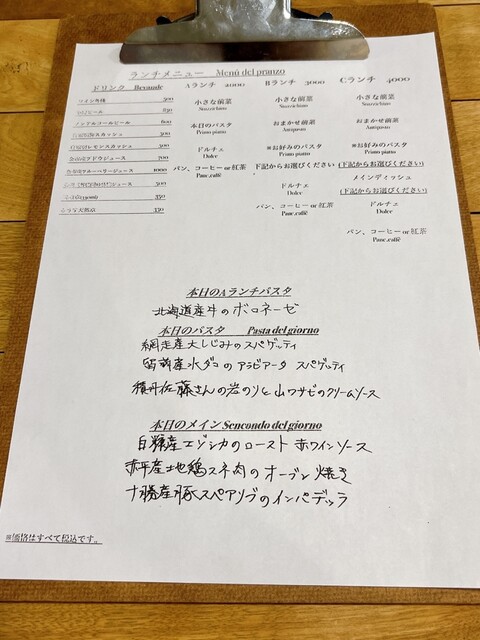 ランチメニュー Menú del pranzo
ドリンク Bevande Aランチ 2000 Bランチ 3000 Cランチ 4000
小さな前菜 小さな前菜 小さな前菜
Stuzzichino Stuzzichino Stuzzichino
本日のパスタ おまかせ前菜 おまかせ前菜
Primo piatto Antipasto Antipasto
ドルチェ ※お好みのパスタ ※お好みのパスタ
Dolce Primo piatto Primo piatto
パン、コーヒー or 紅茶 下記からお選びください (下記からお選びください)
Pane,caffè
ドルチェ メインディッシュ
Dolce (下記からお選びください)
パン、コーヒー or 紅茶 ドルチェ
Pane,caffè Dolce
パン、コーヒー or 紅茶
Pane,caffè
ノンアルコールビール 600
500
700
1000
500
350
330
本日のAランチパスタ
北海道産牛のボロネーゼ
本日のパスタ Pasta del giorno
網走産大しじみのスパゲッティ
留萌産水ダコのアラビアータ スパゲッティ
積丹佐藤さんの岩のりと山ワサビのクリームソース
本日のメイン Sencondo del giorno
白糠産エゾシカのロースト 赤ワインソース
赤平産地鶏スネ肉のオーブン焼き
十勝産豚スペアリブのインパデッラ
※価格はすべて税込です。